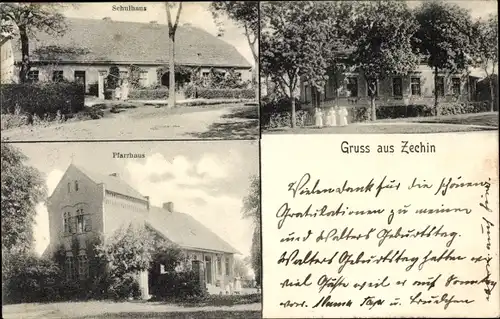 Schulhaus
Pfarrhaus
Gruss aus Zechin
Vielen Dank für die schönen
Gratulationen zu meinem
und Walters Geburtstag.
Walters Geburtstag hatten wir
viel Gäste weil er auf Sonntag
war. Mama Papa u.